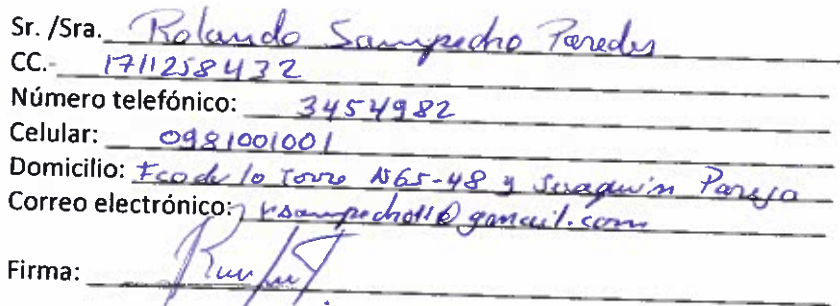 Sr. /Sra. Rolando Sampedro Paredes
CC.- 1711258432
Número telefónico: 3454982
Celular: 0981001001
Domicilio: Fco de la Torre N65-48 y Joaquin Pareja
Correo electrónico: @gmail.com
Firma: